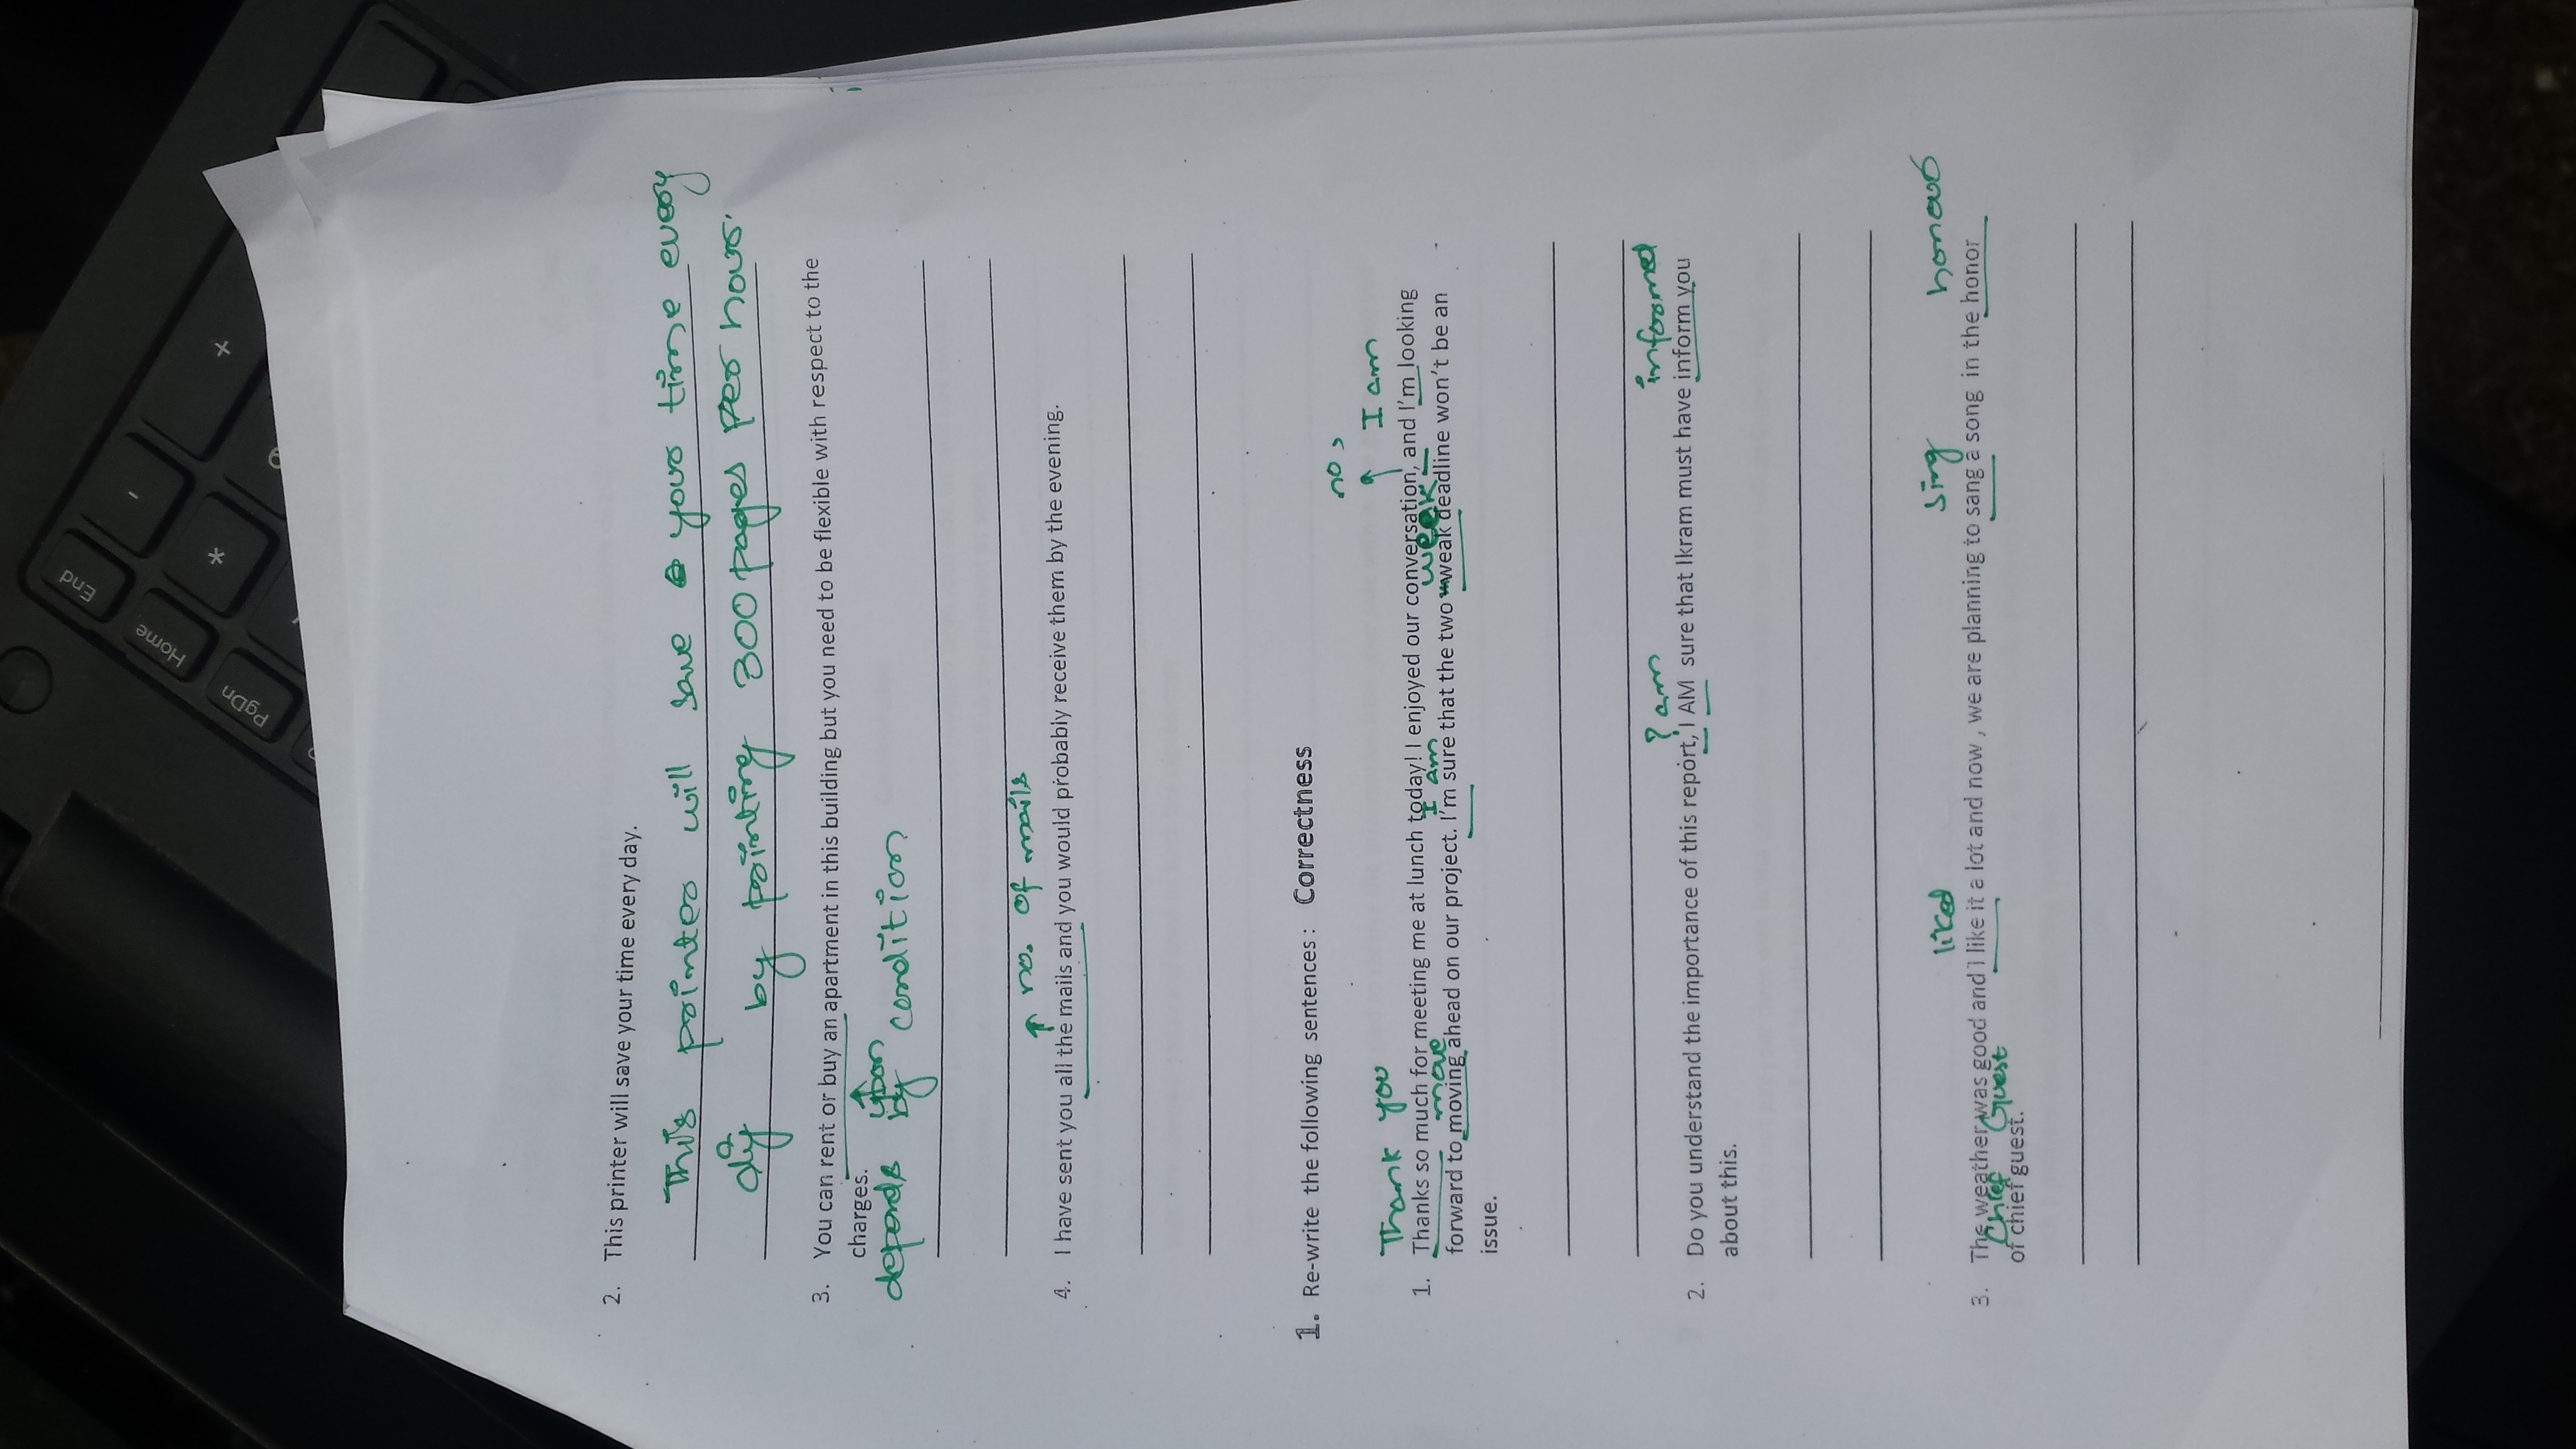 End
Home
PgDn
-
+
*
2. This printer will save your time every day.
This printer will save your time every
day by printing 300 pages per hour.
3. You can rent or buy an apartment in this building but you need to be flexible with respect to the
charges.
upon
depends by condition
no. of mails
4. I have sent you all the mails and you would probably receive them by the evening.
1. Re-write the following sentences: Correctness
no ,
Thank you I am
1. Thanks so much for meeting me at lunch today! I enjoyed our conversation, and I'm looking
move I am week
forward to moving ahead on our project. I'm sure that the two weak deadline won't be an
issue.
? am informed
2. Do you understand the importance of this report, I AM sure that Ikram must have inform you
about this.
liked sing honour
3. The weather was good and I like it a lot and now , we are planning to sang a song in the honor
Chief Guest
of chief guest.